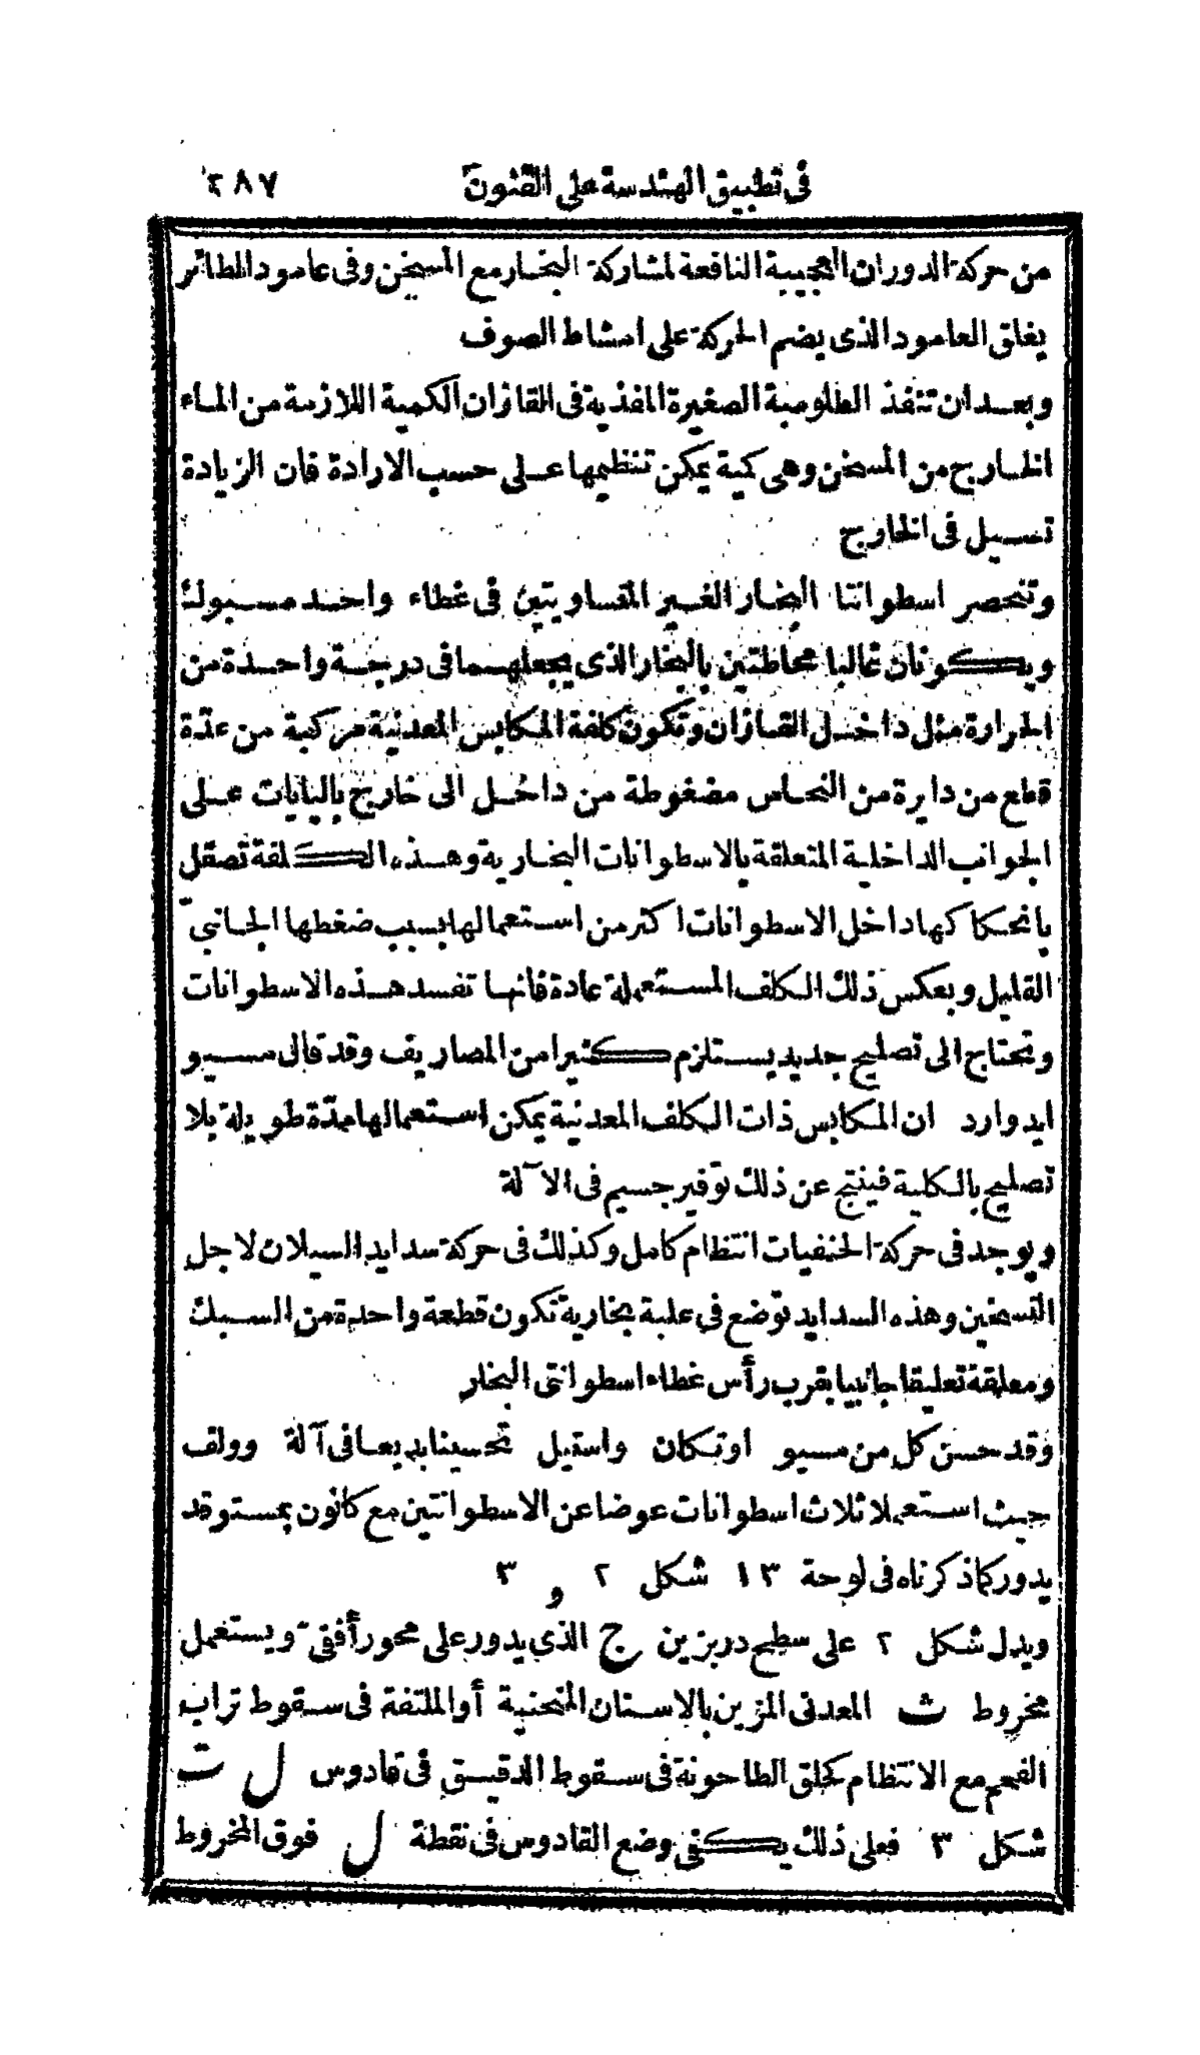 فى تطبيق الهندسة على الفنون ٢٨٧
من حركة الدوران العجيبة النافعة لمشاركة البخار مع المسخن وفى عامود الطائر
يغلق العامود الذى يضم الحركة على امشاط الصوف
وبعد ان تنفذ الطلومبة الصغيرة المغذية فى القازان الكمية اللازمة من الماء
الخارج من المسخن وهى كمية يمكن تنظيمها على حسب الارادة فان الزيادة
تسيل فى الخارج
وتنحصر اسطوانتا البخار الغير المتساويتين فى غطاء واحد مسبوك
ويكونان غالبا محاطتين بالبخار الذى يجعلهما فى درجة واحدة من
الحرارة مثل داخل القازان وتكون كلفة المكابس المعدنية مركبة من عدّة
قطع من دايرة من النحاس مضغوطة من داخل الى خارج بالبايات على
الجوانب الداخلية المتعلقة بالاسطوانات البخارية وهذه الكلفة تصقل
بانحكاكها داخل الاسطوانات اكثر من استعمالها بسبب ضغطها الجانبىّ
القليل وبعكس ذلك الكلف المستعملة عادة فانها تفسد هذه الاسطوانات
وتحتاج الى تصليح جديد يستلزم كثيرا من المصاريف وقد قال مسيو
ايدوارد ان المكابس ذات الكلف المعدنية يمكن استعمالها مدّة طويلة بلا
تصليح بالكلية فينتج عن ذلك توفير جسيم فى الآلة
ويوجد فى حركة الحنفيات انتظام كامل وكذلك فى حركة سدايد السيلان لاجل
التسخين وهذه السدايد توضع فى علبة بخارية تكون قطعة واحدة من السبك
ومعلقة تعليقا جانبيا بقرب رأس غطاء اسطوانتى البخار
وقد حسن كل من مسيو اوتكان واستيل تحسينا بديعا فى آلة وولف
حيث استعملا ثلاث اسطوانات عوضا عن الاسطوانتين مع كانون بمستوقد
يدور كما ذكرناه فى لوحة ١٣ شكل ٢ و ٣
ويدل شكل ٢ على سطح دربزين ج الذى يدور على محور أفقىّ ويستعمل
مخروط ث المعدنى المزين بالاسنان المنحنية أو الملتفة فى سقوط تراب
الفحم مع الانتظام كحلق الطاحونة فى سقوط الدقيق فى قادوس ل ت
شكل ٣ فعلى ذلك يكفى وضع القادوس فى نقطة ل فوق المخروط